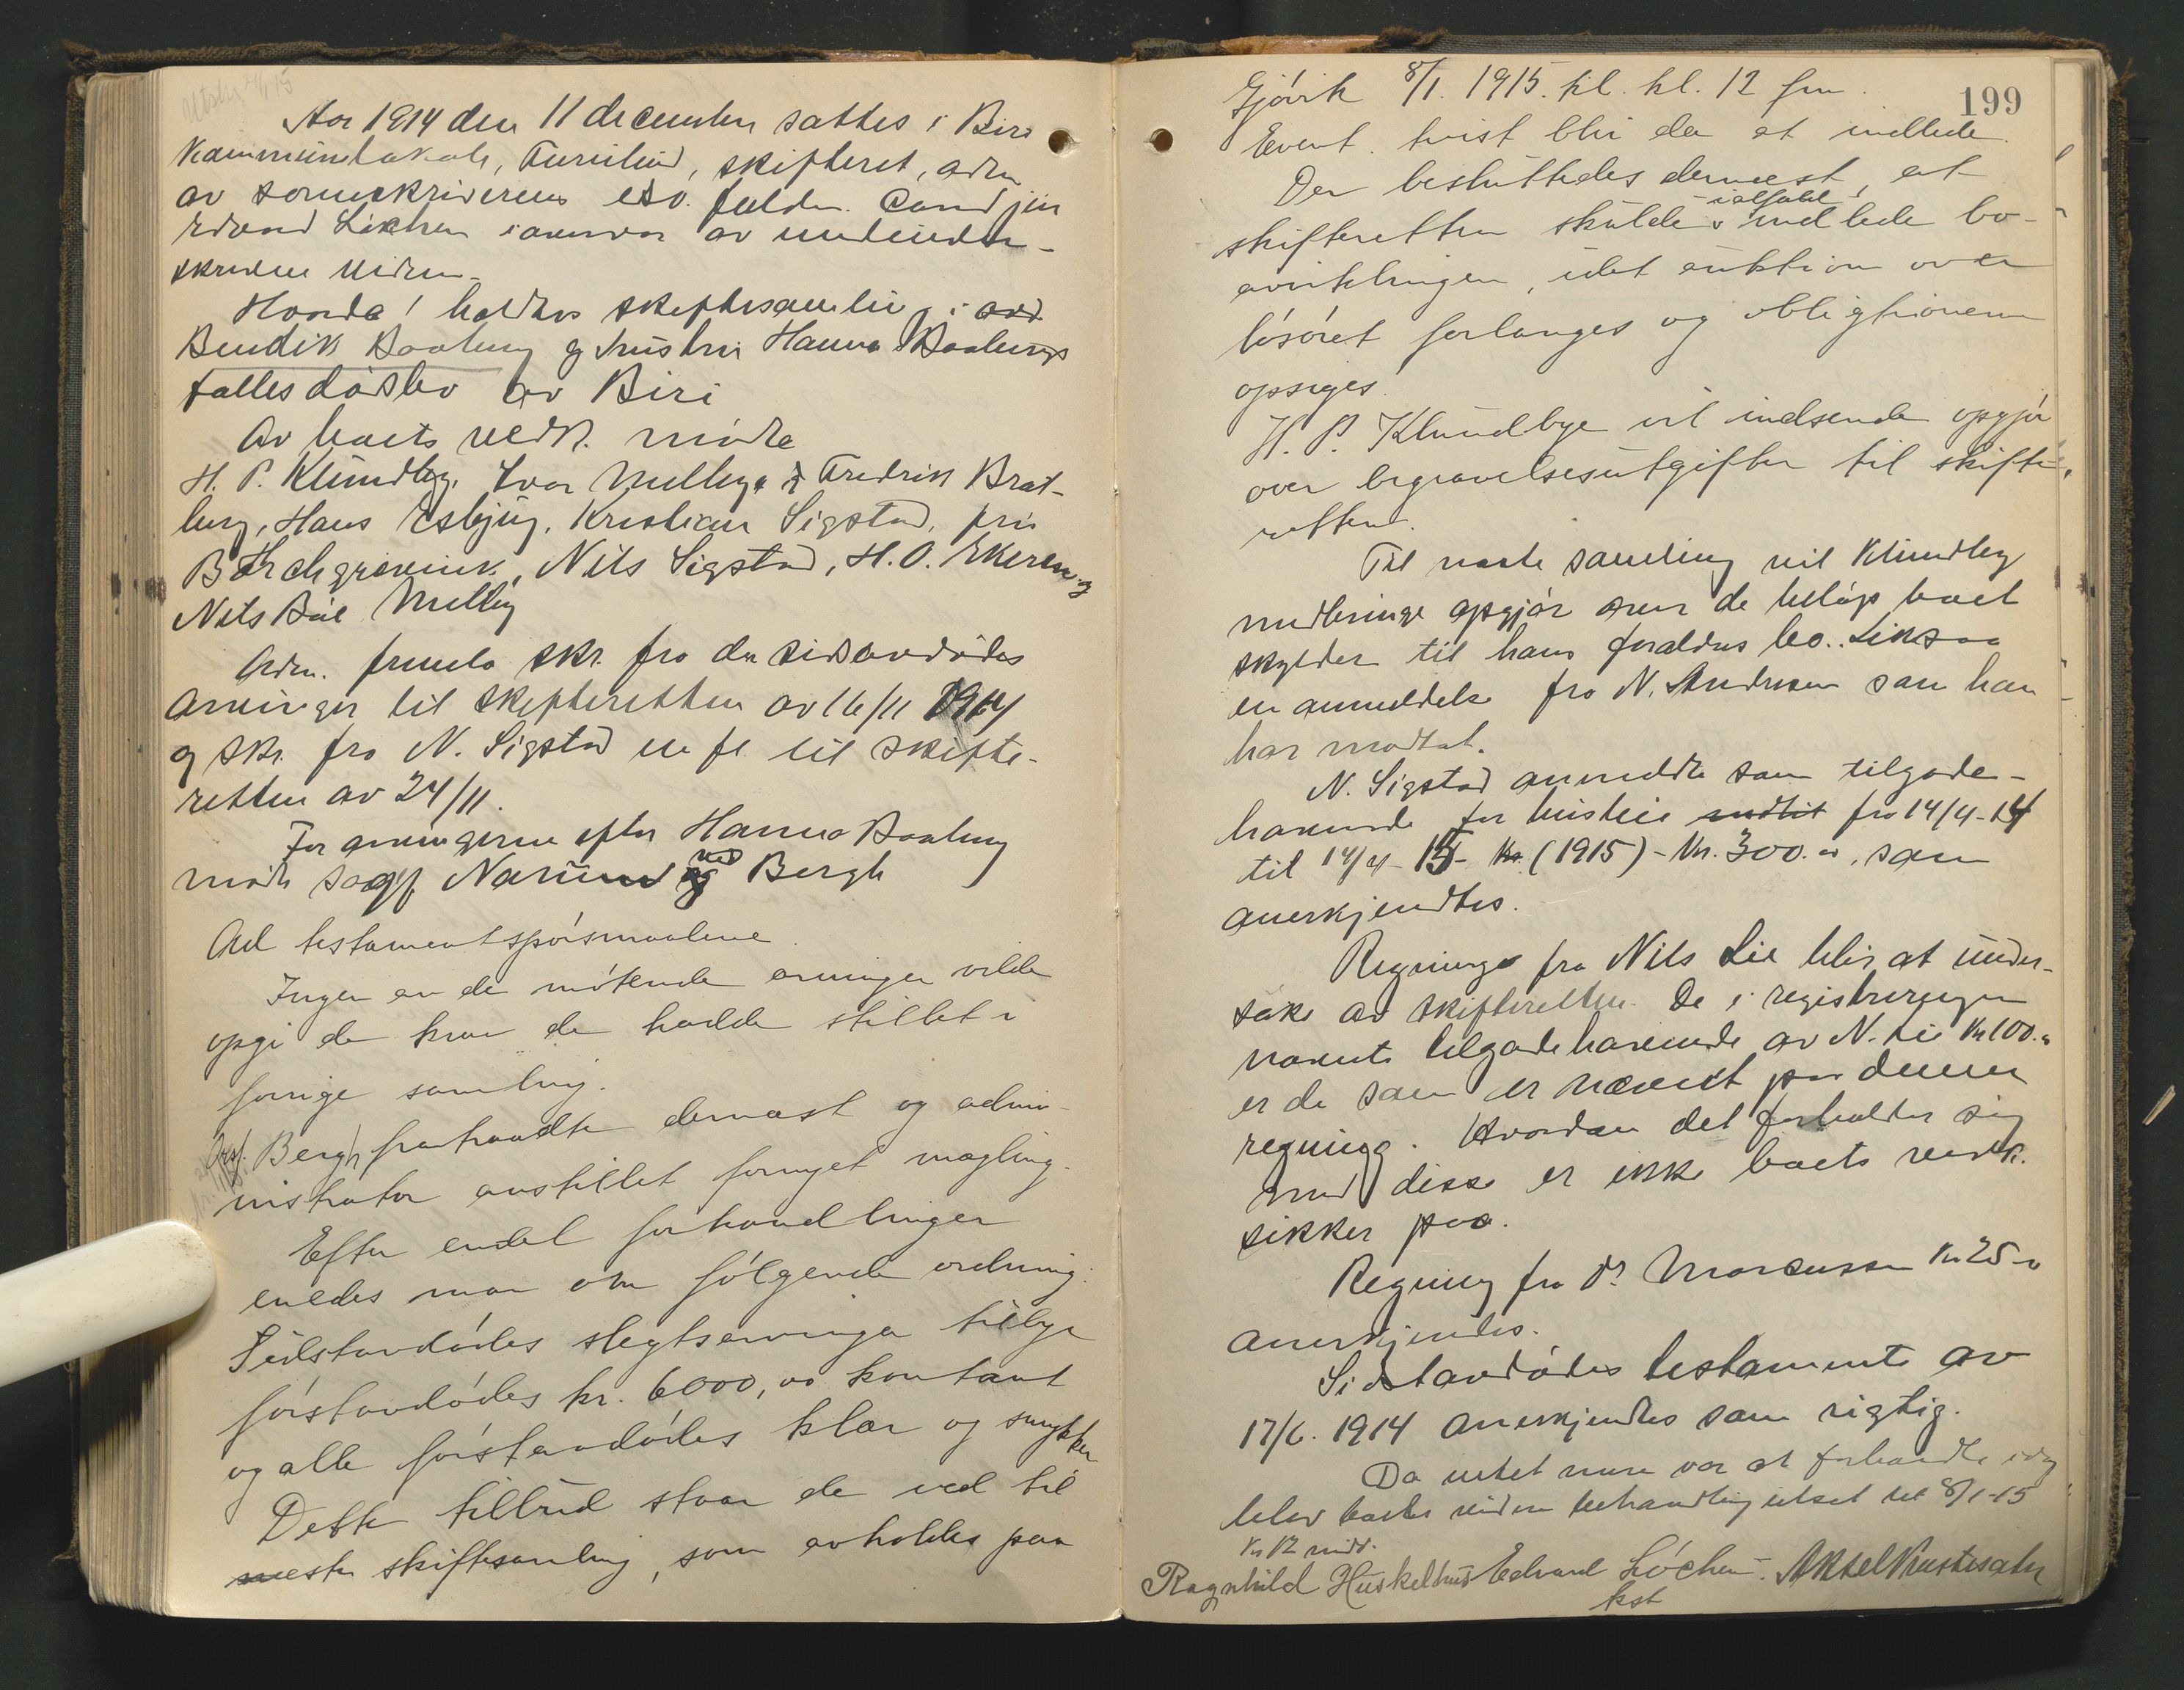 Aar 1914 den 11 december sattes i Biri
kommunelokale, skifteret, adm.
av sorenskriverens eds. fuldm. Cand jur
Edvard Løchen i overvær av undertegn-
skrevne vidner.
Hvorda! holdtes skiftesamling i avd.
Bendik Baaberg og hustru Hanna Baabergs
fælles dødsbo av Biri
Av boets vedk. mødte
H. P. Klundby, Ivar Melby, og Fredrik Brat-
berg, Hans Esbjug, Kristian Sigstad, fru
Borchgrevink, Nils Sigstad, H. O. Ekeren, og
Nils Melby
Adm. fremla skr. fra den sidstavdødes
arvinger til skifteretten av 16/11 1914
og skr. fra N. Sigstad m fl. til skifte-
retten av 24/11.
For arvingerne efter Hanna Baaberg
mødte sagf. Narum ved Bergh
Ad testamentspørsmaalene
Ingen av de møtende arvinger vilde
opgi de krav de hadde stillet i
forrige samling.
Orsf. Bergh forhandlte dernæst og admi-
nistrator anstillet fornyet mægling.
Efter endel forhandlinger
enedes man om følgende ordning:
Sidstavdødes slegtsarvinger tilbyr
førstavdødes kr. 6000,00 kontant
og alle førstavdødes klær og smykker
Dette tilbud staar de ved til
næste skiftesamling, som avholdes paa
199
Gjøvik 8/1. 1915. kl. kl. 12 fm.
Event. tvist blir da at indlede.
Der besluttedes dernæst, at
ialfald
skifteretten skulde indlede bo-
avviklingen, idet auktion over
løsøret forlanges og obligationene
opsiges.
H. P. Klundbye vil indsende opgjør
over begravelsesutgifter til skifte-
retten.
Til næste samling vil Klundby
medbringe opgjør over de beløp boet
skylder til hans forældres bo. Likesaa
en anmeldelse fra N. Andresen som han
har modtat.
N. Sigstad anmeldte som tilgode-
havende for husleie indtil fra 14/4-14
til 14/4-15- kr. (1915) - Kr. 300.00, som
anerkjendtes.
Regninge fra Nils Lie blir at under-
søke av skifteretten. De i registreringen
nævnte tilgodehavende av N. Lie kr 100.00
er de som er nævnt paa denne
regning. Hvordan det forholder sig
med disse er ikke boets vedk.
sikker paa.
Regning fra Dr Marcussen kr 25-00
anerkjendes.
Sidstavdødes testamente av
17/6. 1914 anerkjendtes som rigtig.
Da intet mere var at forhandle idag
blev boets videre behandling utsat til 8/1-15
kl 12 midd.
Ragnhild Huskelhus Edvard Løchen. Aksel
kst